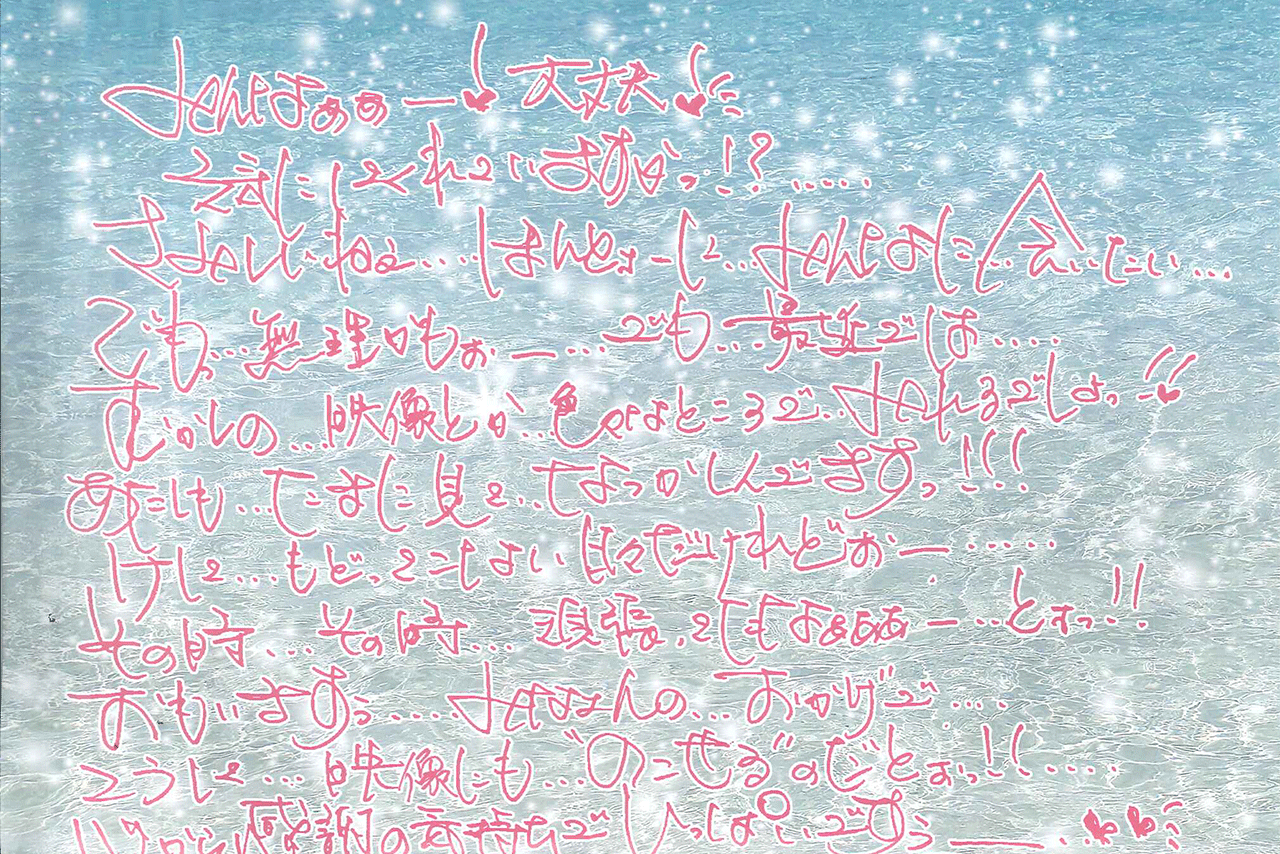 みんなぁぁー 丈夫
元気にしてくれていますかっ!?.....
さみしいねぇ....ほんとぉーに...みんなに会えいたい...
でもっ...無理ゎもぉー....でも...最近では.....
むかしの...映像とか...色んなところで...みれるでしょっ!!
あたしも...たまに見て...なつかしんでますっ!!!
けして...もどってこない時だけれどぉー.....
その時...その時...頑張ってたなぁぁぁー...とぉっ!!
おもいますぅ....みなさんの...おかげで....
こうして...映像にも..."のこせる"のだとぉっ!!.....
感謝の気持ちでいっぱいですぅ